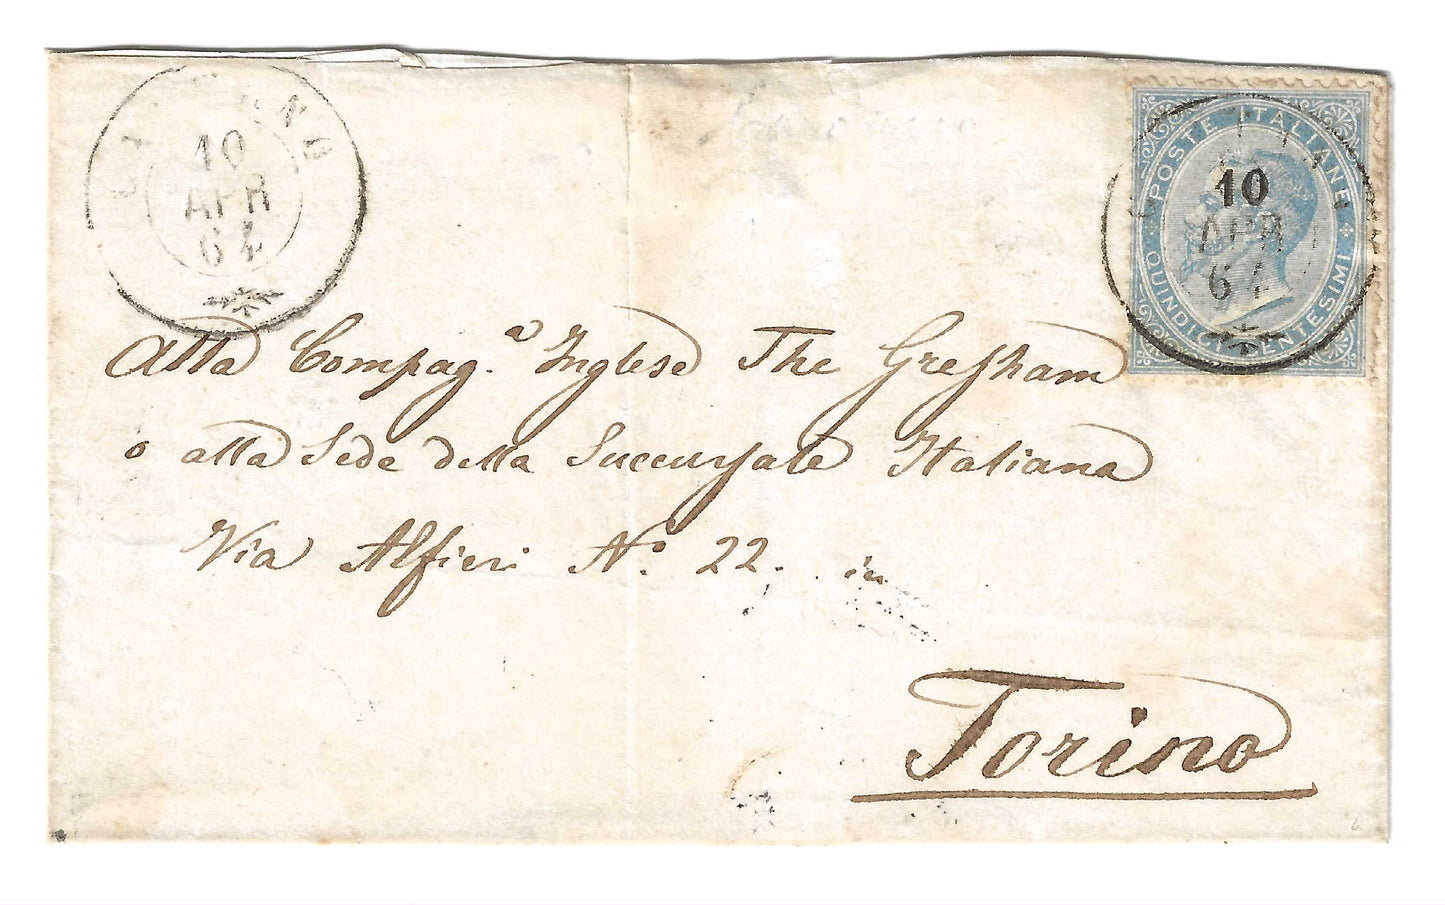 10
APR
64
POSTE ITALIANE
QUINDICI CENTESIMI
10
APR
64
Alla Compag.ª Inglese The Gresham
o alla Sede della Succursale Italiana
Via Alfieri N.º 22. in
Torino